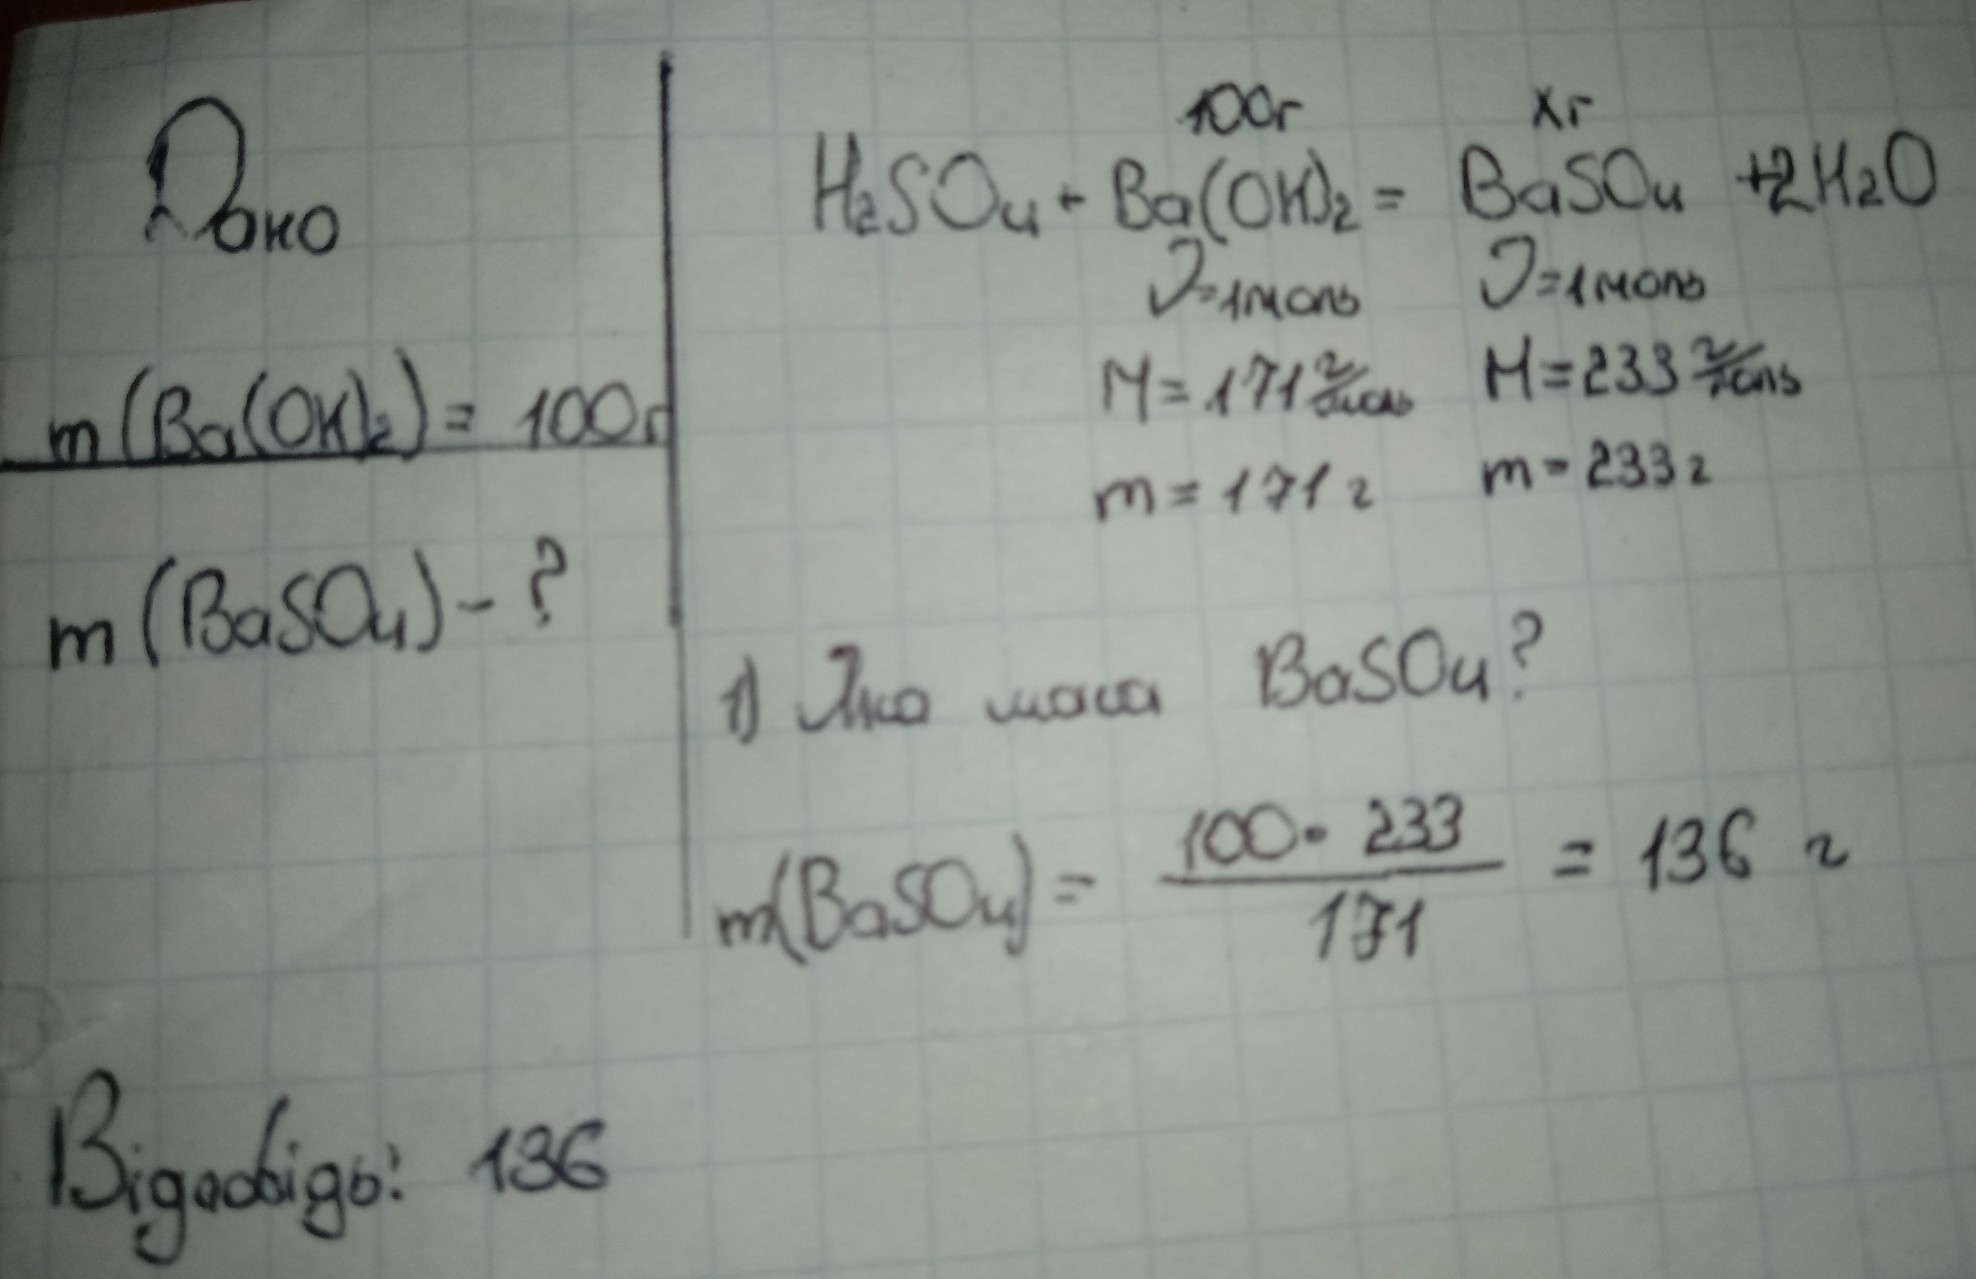 Дано
m(Ba(OH)₂) = 100г
m(BaSO₄) - ?
100г xг
H₂SO₄ + Ba(OH)₂ = BaSO₄ + 2H₂O
ν=1моль ν=1моль
M=171 г/моль M=233 г/моль
m=171 г m=233 г
1) Яка маса BaSO₄?
m(BaSO₄) = 100 · 233 / 171 = 136 г
Відповідь: 136